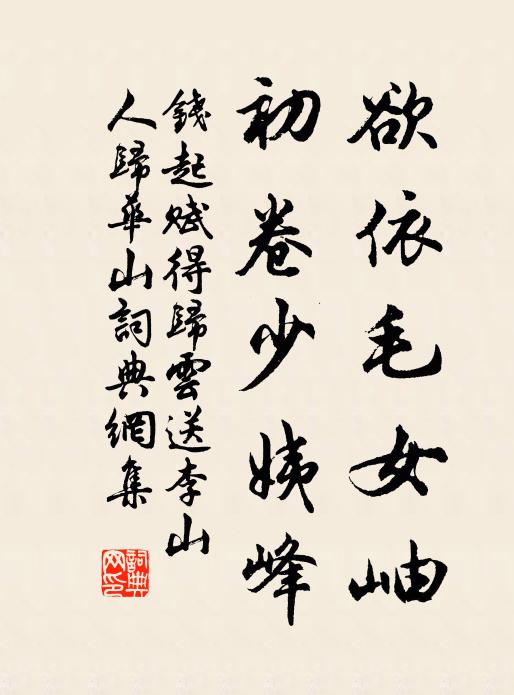 欲依毛女岫
初卷少姨峰
錢起賦得歸雲送李山
人歸華山詞典網集
詞典
网印